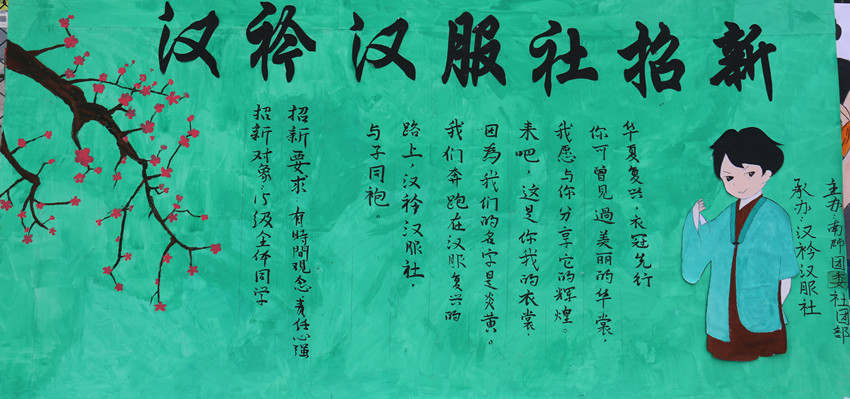 汉衿汉服社招新
主办:南师团委社团部
承办:汉衿汉服社
华夏复兴,衣冠先行
你可曾见過美丽的华裳,
我愿与你分享它的辉煌。
来吧,这是你我的衣裳,
因為我们的名字是炎黄。
我们奔跑在汉服复兴的
路上,汉衿汉服社,
与子同袍。
招新要求:有時間观念,责任心强
招新对象:15级全体同学